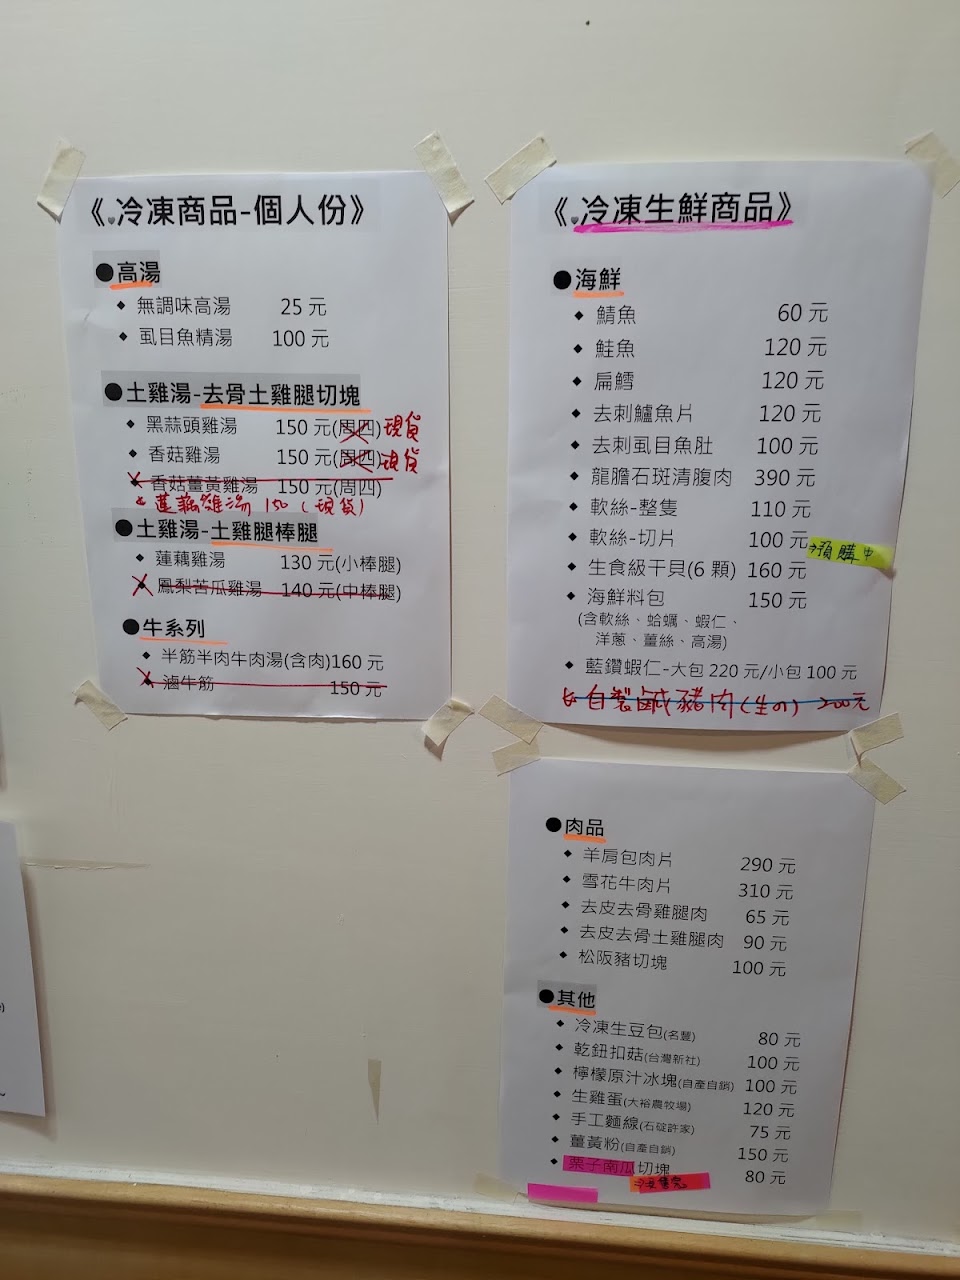 《冷凍商品-個人份》
●高湯
◆ 無調味高湯 25 元
◆ 虱目魚精湯 100 元
●土雞湯-去骨土雞腿切塊
◆ 黑蒜頭雞湯 150 元(周四)現貨
◆ 香菇雞湯 150 元(周四)現貨
香菇薑黃雞湯 150 元(周四)
蓮藕雞湯 150 (現貨)
●土雞湯-土雞腿棒腿
◆ 蓮藕雞湯 130 元(小棒腿)
◆ 鳳梨苦瓜雞湯 140 元(中棒腿)
●牛系列
◆ 半筋半肉牛肉湯(含肉)160 元
◆ 滷牛筋 150 元
《冷凍生鮮商品》
●海鮮
◆ 鯖魚 60 元
◆ 鮭魚 120 元
◆ 扁鱈 120 元
◆ 去刺鱸魚片 120 元
◆ 去刺虱目魚肚 100 元
◆ 龍膽石斑清腹肉 390 元
◆ 軟絲-整隻 110 元
◆ 軟絲-切片 100 元 預購中
◆ 生食級干貝(6 顆) 160 元
◆ 海鮮料包 150 元
(含軟絲、蛤蠣、蝦仁、
洋蔥、薑絲、高湯)
◆ 藍鑽蝦仁-大包 220 元/小包 100 元
自製鹹豬肉(生的) 200元
●肉品
◆ 羊肩包肉片 290 元
◆ 雪花牛肉片 310 元
◆ 去皮去骨雞腿肉 65 元
◆ 去皮去骨土雞腿肉 90 元
◆ 松阪豬切塊 100 元
●其他
◆ 冷凍生豆包(名豐) 80 元
◆ 乾鈕扣菇(台灣新社) 100 元
◆ 檸檬原汁冰塊(自產自銷) 100 元
◆ 生雞蛋(大裕農牧場) 120 元
◆ 手工麵線(石碇許家) 75 元
◆ 薑黃粉(自產自銷) 150 元
◆ 栗子南瓜切塊 80 元
售完